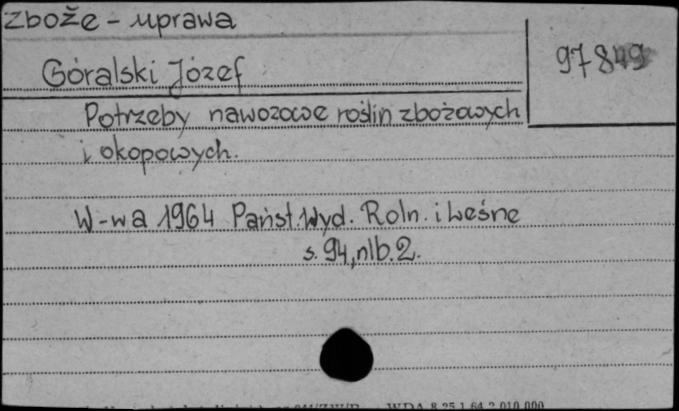 Zboże - uprawa
97849
Góralski Józef
Potrzeby nawozowe roślin zbożowych
i okopowych.
W-wa 1964 Państ. Wyd. Roln. i Leśne
s. 94, nlb. 2.
WDA 8.25.1.64 2.010.000